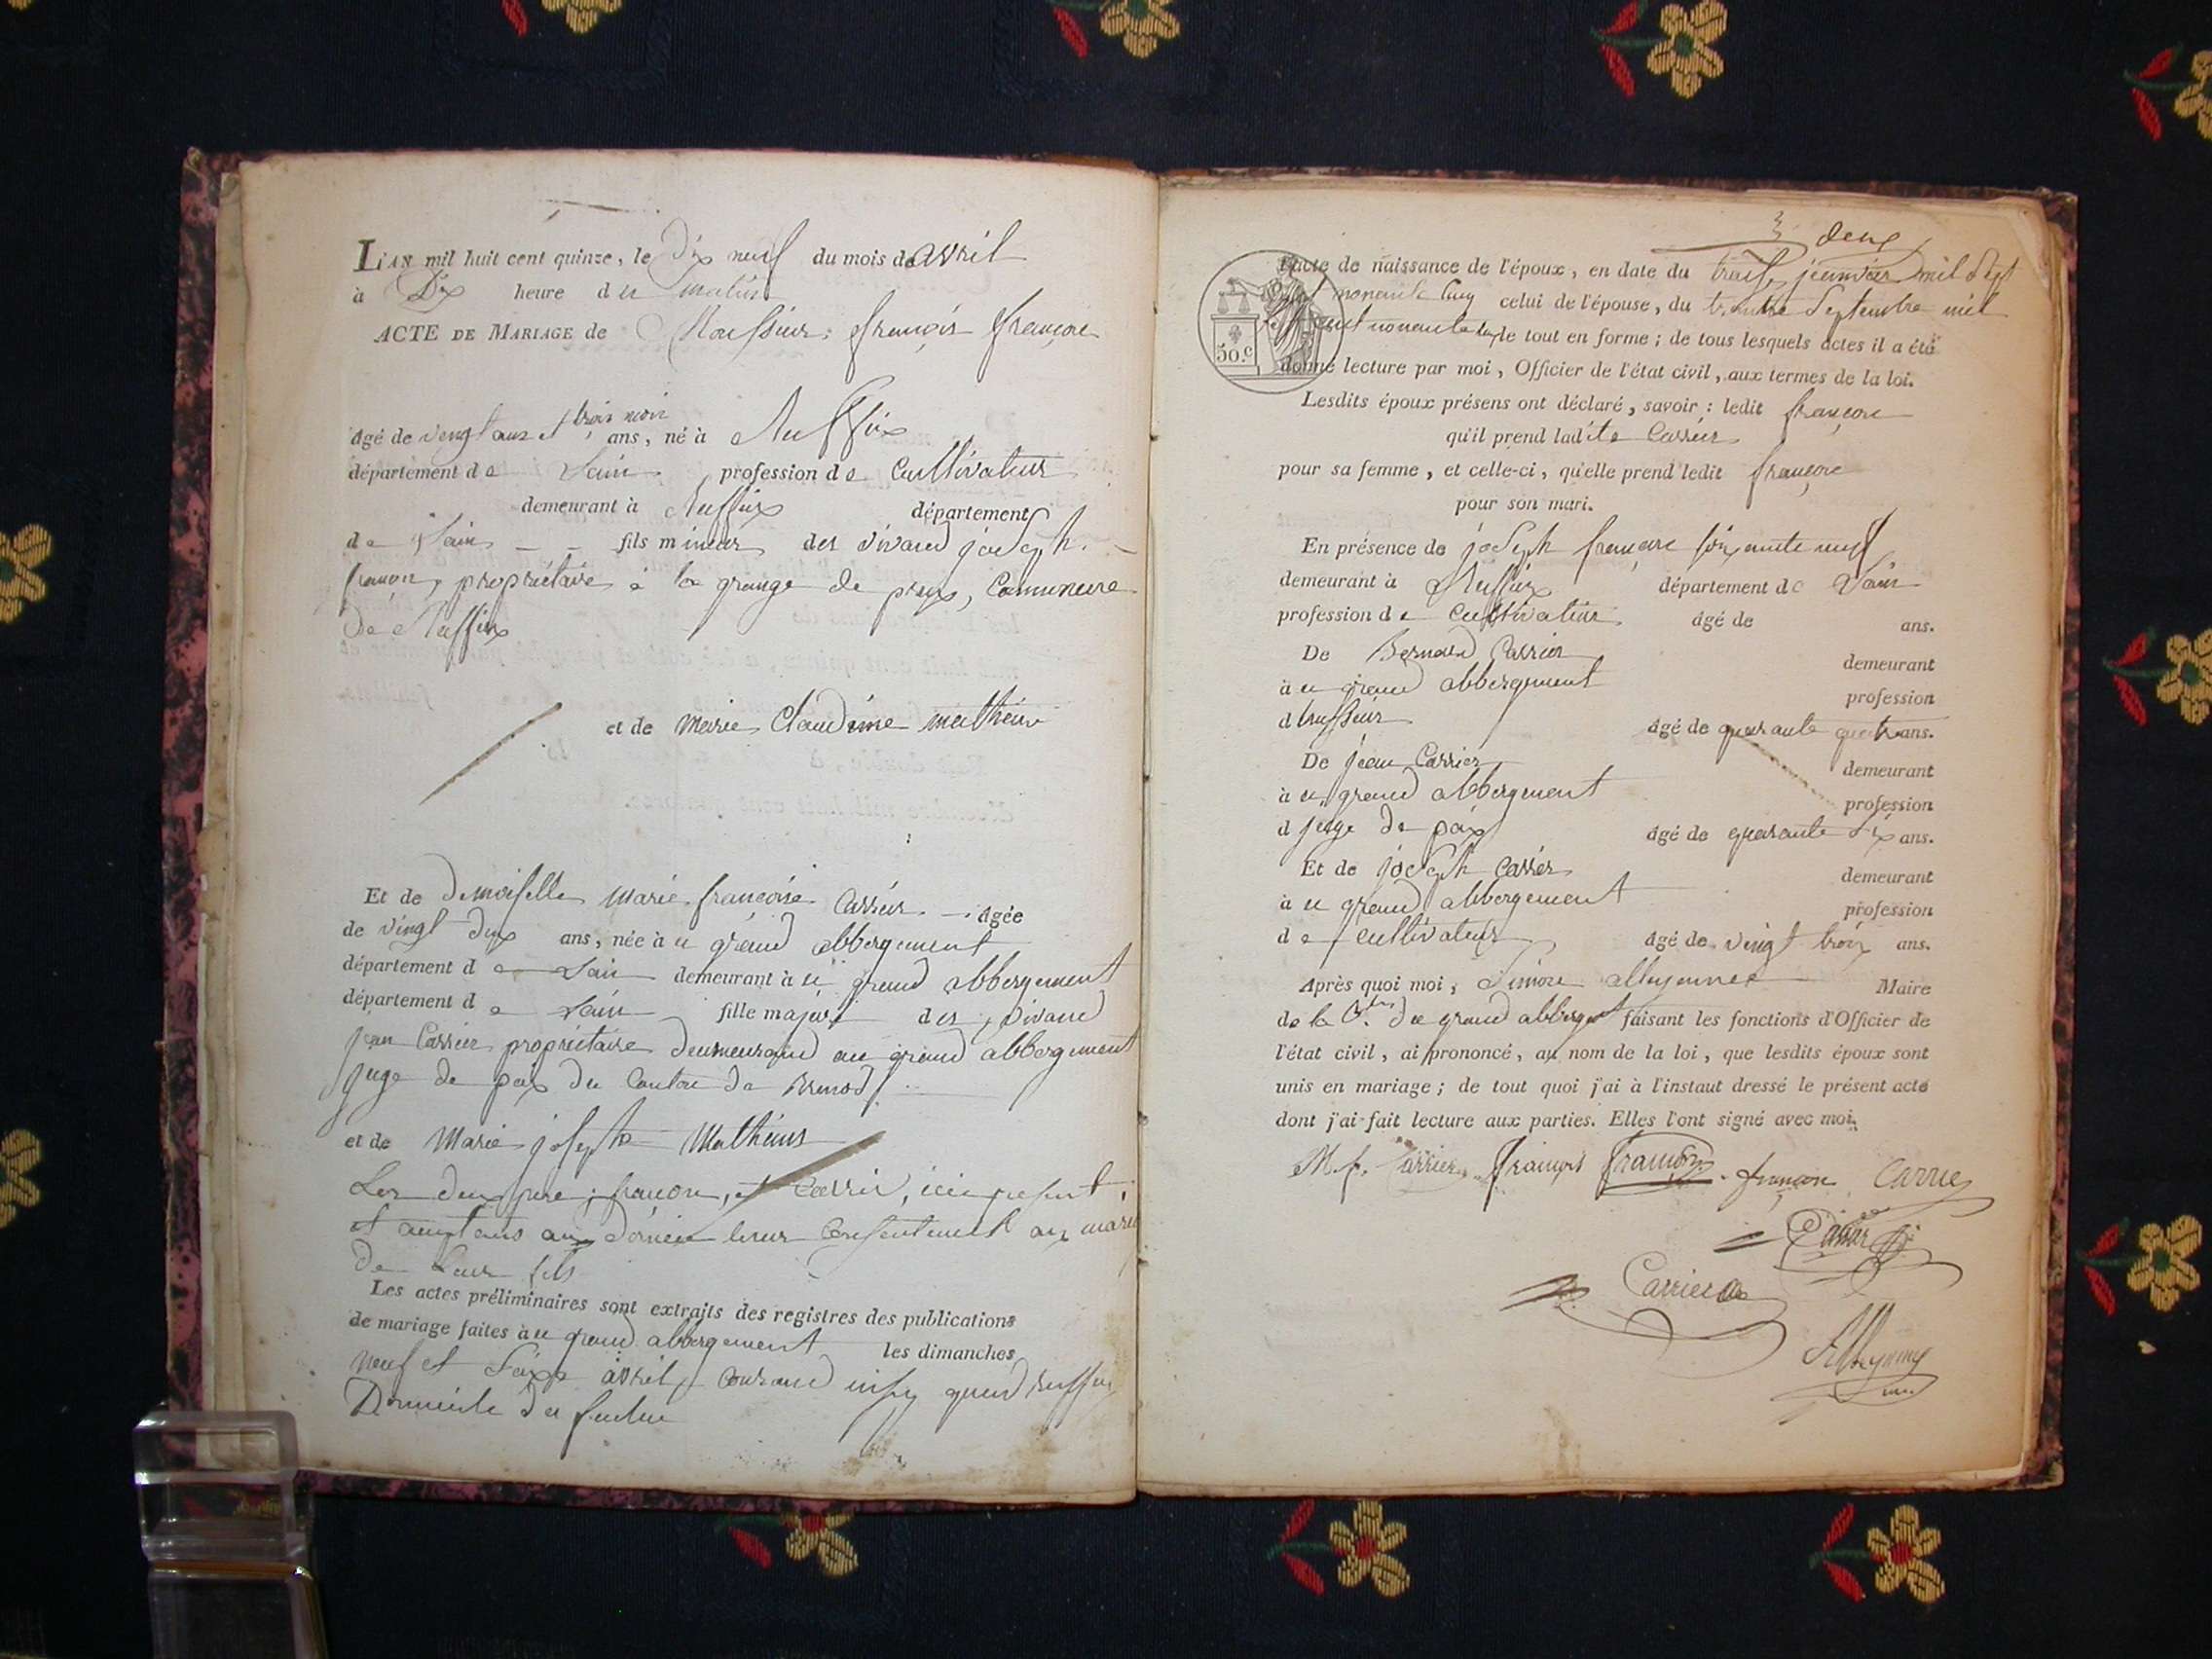 L'AN mil huit cent quinze, le Dix neuf du mois de avril
à Dix heure du matin
ACTE DE MARIAGE de françois françon
âgé de vingt ans et trois mois ans, né à Ruffieu
département de Lain profession de Cultivateur
demeurant à Ruffieu département
de Lain fils mineur des vivand joseph
françon, propriétaire à la grange de Commune
De Ruffieu
et de marie Claudine mathieu
Et de Demoiselle marie françoise Carrier âgée
de vingt deux ans, née à u grand abbergement
département de Lain demeurant à u grand abbergement
département de Lain fille majure des vivand
jean Carrier propriétaire demeurand au grand abbergement
juge de paix du Canton de Brenod
et de Marie josephe Mathieu
Les deux pere, françon, et Carrier, ici present,
et leur Consentement au
De Leur fils
Les actes préliminaires sont extraits des registres des publications
de mariage faites à u grand abbergement les dimanches
neuf et Seize avril Courand
Domicile du futur
3 deux
l'acte de naissance de l'époux, en date du janvier mil Sept
nonante Cinq celui de l'épouse, du trentte Septembre mil
nonante le tout en forme ; de tous lesquels actes il a été
donné lecture par moi, Officier de l'état civil, aux termes de la loi.
50.c
Lesdits époux présens ont déclaré, savoir : ledit françon
qu'il prend ladite Carrier
pour sa femme, et celle-ci, qu'elle prend ledit françon
pour son mari.
En présence de joseph françon soixante neuf
demeurant à Ruffieu département de Lain
profession de Cultivateur âgé de ans.
De Bernard Carrier demeurant
à u grand abbergement profession
d huissier âgé de quarante quatre ans.
De jean Carrier demeurant
à u grand abbergement profession
d juge de paix âgé de quarante Six ans.
Et de joseph Carrier demeurant
à u grand abbergement profession
de cultivateur âgé de vingt trois ans.
Après quoi moi, Simon Maire
de la du grand abbergt faisant les fonctions d'Officier de
l'état civil, ai prononcé, au nom de la loi, que lesdits époux sont
unis en mariage ; de tout quoi j'ai à l'instaut dressé le présent acte
dont j'ai fait lecture aux parties. Elles l'ont signé avec moi.
M. f. Carrier françois françon françon Carrier
Carrier